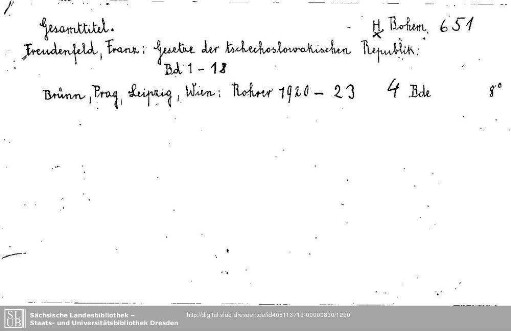 Gesamttitel. H Bohem. 651
Freudenfeld, Franz: Gesetze der tschechoslowakischen Republik.
Bd 1 - 18
Brünn, Prag, Leipzig, Wien: Rohrer 1920 - 23 4 Bde 8°
SLUB
Sächsische Landesbibliothek –
Staats- und Universitätsbibliothek Dresden